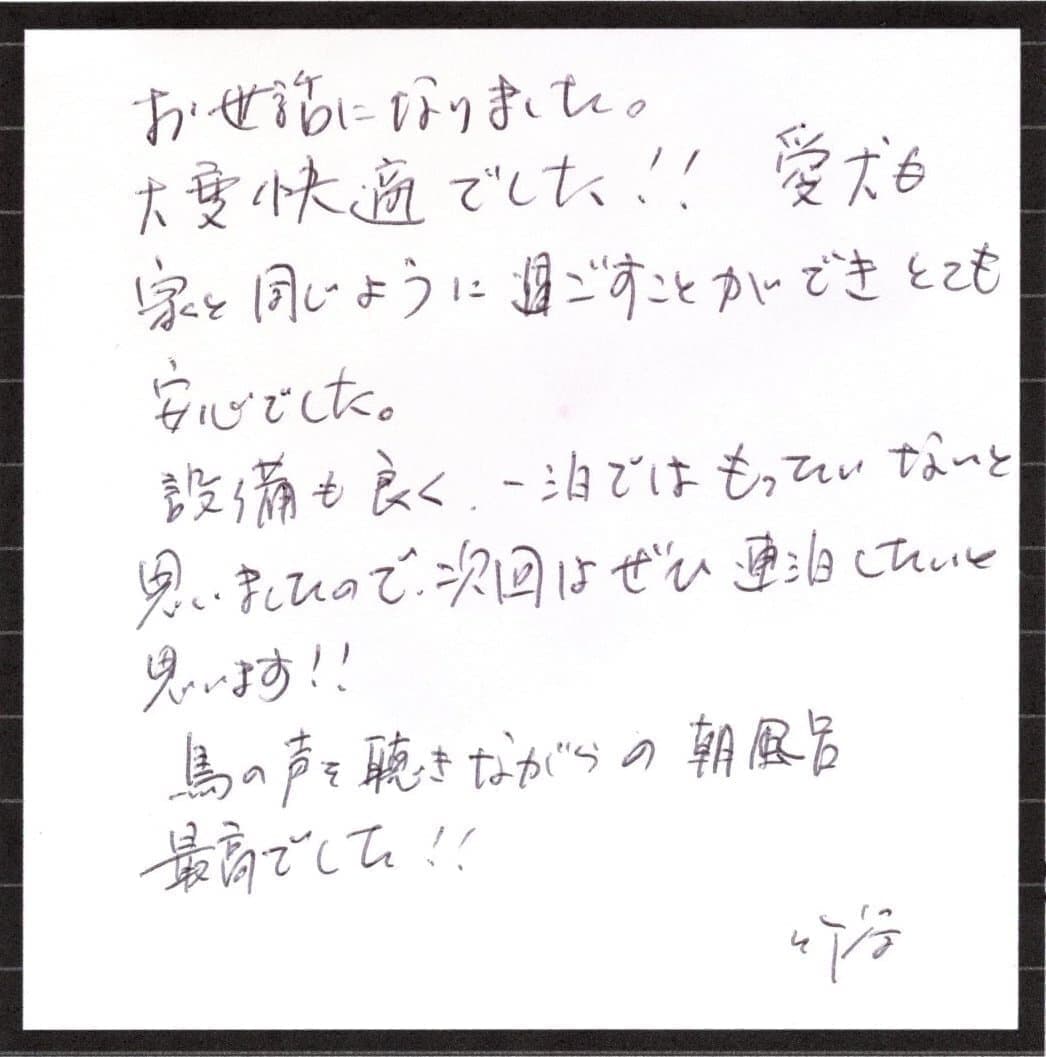 お世話になりました。
大変快適でした!! 愛犬も
家と同じように過ごすことができとても
安心でした。
設備も良く、一泊ではもっていないと
思いましたので、次回はぜひ連泊したいと
思います!!
鳥の声を聴きながらの朝風呂
最高でした!!
竹谷